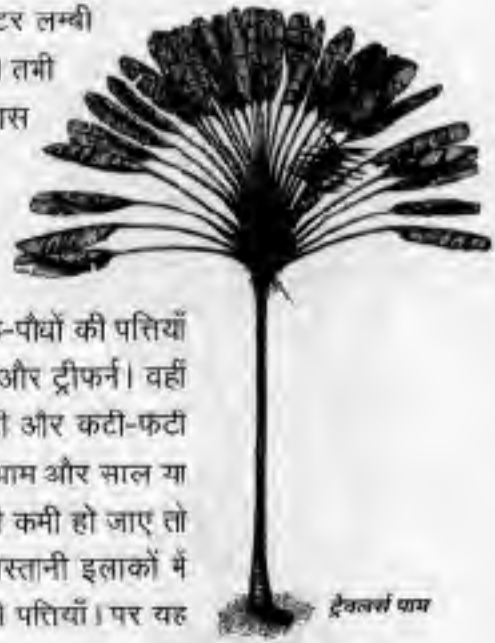 टर लम्बी
। तभी
ास
-पौधों की पत्तियाँ
और ट्रीफर्न। वहीं
ी और कटी-फटी
पाम और साल या
ी कमी हो जाए तो
स्तानी इलाकों में
ी पत्तियाँ। पर यह
ट्रेवलर्स पाम